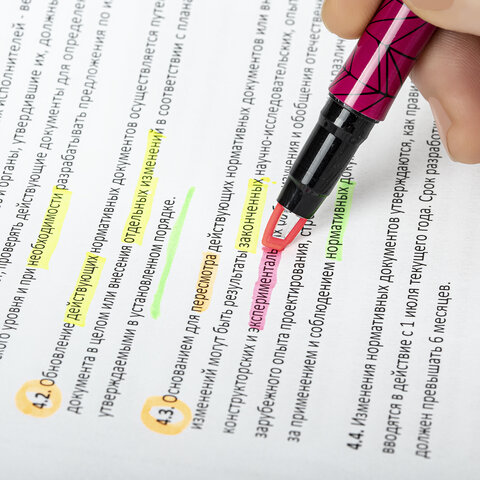 исполнителей - ве
и органы, утвердившие их, должны
, проверять действующие нормативные документы для определен
ого уровня и при необходимости разрабатывать предложения по и
4.2. Обновление действующих нормативных документов осуществляется путем
документа в целом или внесения отдельных изменений в соответствии с плана
утверждаемыми в установленном порядке.
4.3. Основанием для пересмотра действующих нормативных документов или вн
изменений могут быть результаты законченных научно-исследовательских, опыт
конструкторских и эксперименталь их обобщения отечестве
зарубежного опыта проектирования, различ
за применением и соблюдением нормативных доку
4.4. Изменения нормативных документов утверждаются, как прави
вводятся в действие с 1 июля текущего года. Срок разработ
должен превышать 6 месяцев.